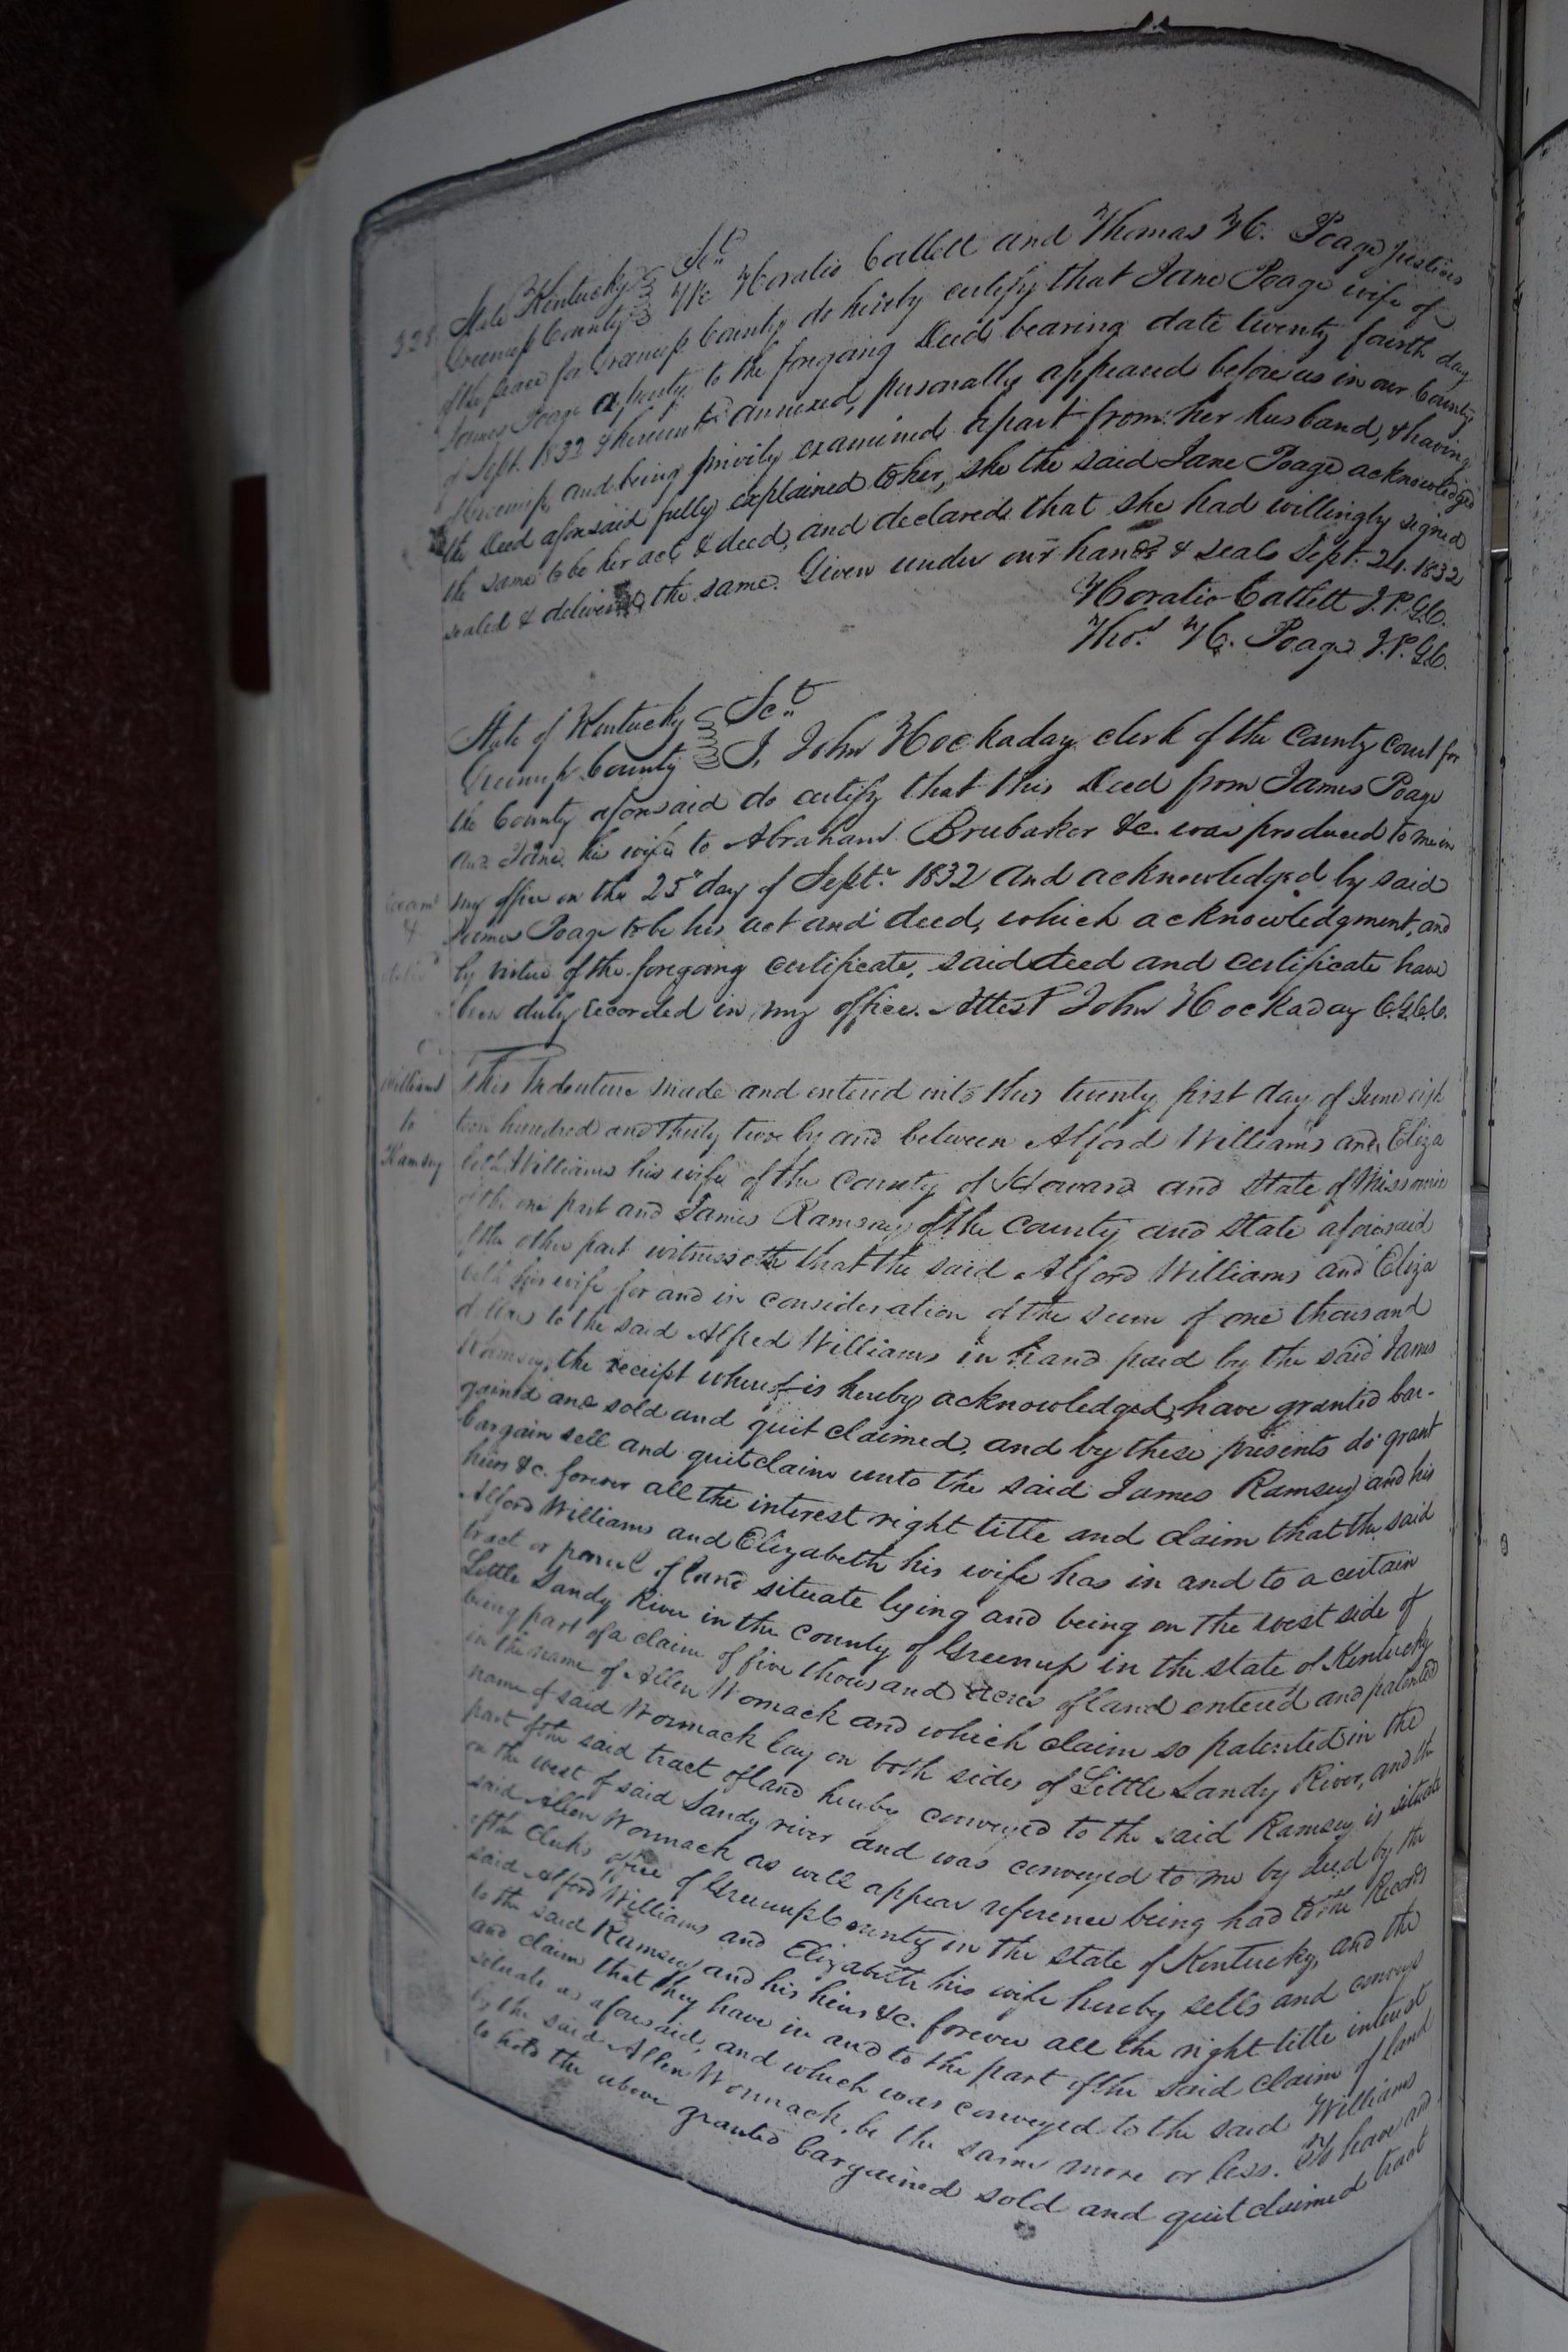 328. State Kentucky Sct.
Greenup County We Horatio Catlett and Thomas H. Poage justices
of the peace for Greenup County do hereby certify that Jane Poage wife of
James Poage a party to the foregoing Deed bearing date twenty fourth day
of Sept. 1832 & hereunto annexed, personally appeared before us in our County
of Greenup, and being privily examined apart from her husband, & having
the Deed aforesaid fully explained to her, she the said Jane Poage acknowledged
the same to be her act & deed, and declared that she had willingly signed
sealed & delivered the same. Given under our hands & seals Sept. 24. 1832
Horatio Catlett J.P.G.C.
Tho.s H. Poage J.P.G.C.
State of Kentucky Sct.
Greenup County I, John Hockaday clerk of the County Court for
the County aforesaid do certify that this Deed from James Poage
and Jane his wife to Abraham Brubaker &c. was produced to me in
my office on the 25" day of Sept.r 1832 and acknowledged by said
James Poage to be his act and deed, which acknowledgment, and
by virtue of the foregoing certificate, said deed and certificate have
been duly recorded in my office. Attest John Hockaday C.G.C.C.
Williams
to
Ramsey
This Indenture made and entered into this twenty first day of June eigh
teen hundred and thirty two by and between Alford Williams and Eliza
beth Williams his wife of the County of Howard and State of Missouri
of the one part and James Ramsey of the County and State aforesaid
of the other part witnesseth that the said Alford Williams and Eliza
beth his wife for and in consideration of the sum of one thousand
dollars to the said Alfred Williams in hand paid by the said James
Ramsey, the receipt whereof is hereby acknowledged, have granted bar-
gained and sold and quit claimed, and by these presents do grant
bargain sell and quitclaim unto the said James Ramsey and his
heirs &c. forever all the interest right title and claim that the said
Alford Williams and Elizabeth his wife has in and to a certain
tract or parcel of land situate lying and being on the west side of
Little Sandy River in the County of Greenup in the state of Kentucky
being part of a claim of five thousand acres of land entered and patented
in the name of Allen Womack and which claim so patented in the
name of said Wommack lay on both sides of Little Sandy River, and the
part of the said tract of land hereby conveyed to the said Ramsey is situate
on the west of said Sandy river and was conveyed to me by deed by the
said Allen Wommack as will appear reference being had to the Records
of the Clerks office of Greenup County in the state of Kentucky, and the
said Alford Williams and Elizabeth his wife hereby sells and conveys
to the said Ramsey and his heirs &c. forever all the right title interest
and claim that they have in and to the part of the said claim of land
situate as aforesaid, and which was conveyed to the said Williams
by the said Allen Wommack, be the same more or less. To have and
to hold the above granted bargained sold and quit claimed tract